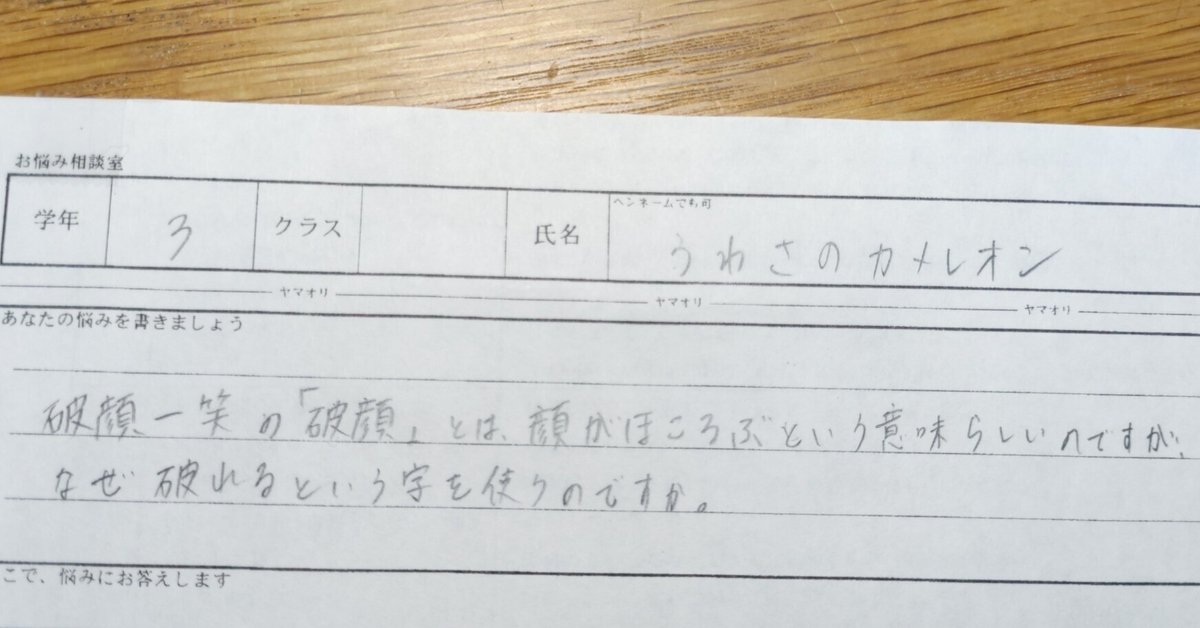 お悩み相談室
学年 3 クラス 氏名 ペンネームでも可
うわさのカメレオン
ヤマオリ ヤマオリ ヤマオリ
あなたの悩みを書きましょう
破顔一笑の「破顔」とは、顔がほころぶという意味らしいのですが、
なぜ破れるという字を使うのですか。
こで、悩みにお答えします